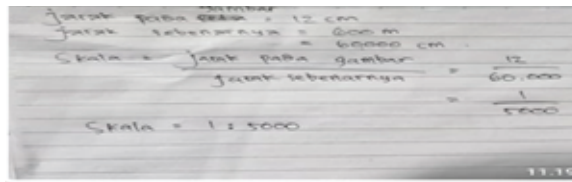 gambar
jarak pada = 12 cm
jarak sebenarnya = 600 m
= 60000 cm.
Skala = jarak pada gambar / jarak sebenarnya = 12 / 60.000
= 1 / 5000
Skala = 1 : 5000
11.19